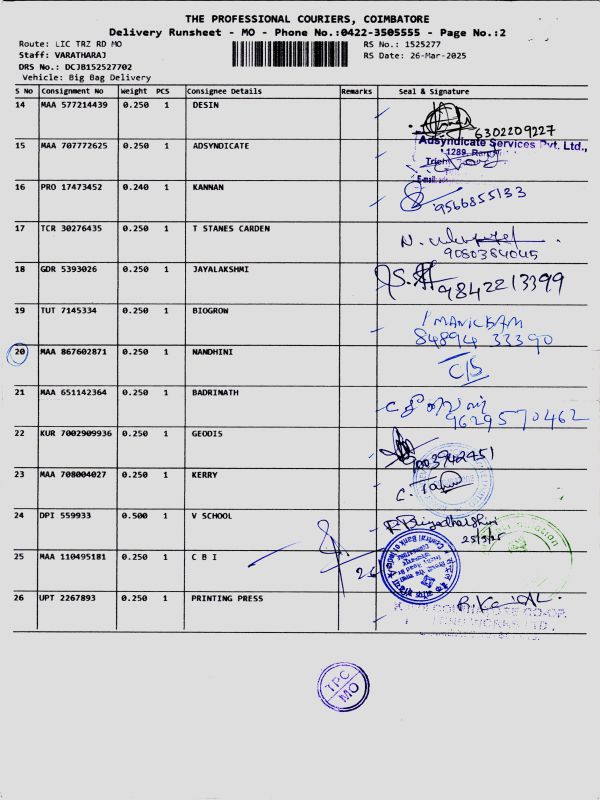 THE PROFESSIONAL COURIERS, COIMBATORE
Delivery Runsheet - MO - Phone No.:0422-3505555 - Page No.:2
Route: LIC TRZ RD MO
RS No.: 1525277
Staff: VARATHARAJ
RS Date: 26-Mar-2025
DRS No.: DCJB152527702
Vehicle: Big Bag Delivery
S No Consignment No Weight PCS Consignee Details Remarks Seal & Signature
14 MAA 577214439 0.250 1 DESIN
6302209227
15 MAA 707772625 0.250 1 ADSYNDICATE
Adsyndicate Services Pvt. Ltd.,
16 PRO 17473452 0.240 1 KANNAN
9566855133
17 TCR 30276435 0.250 1 T STANES CARDEN
9080384045
18 GDR 5393026 0.250 1 JAYALAKSHMI
9842213399
19 TUT 7145334 0.250 1 BIOGROW
MANICKAM
84894 33390
20 MAA 867602871 0.250 1 NANDHINI
C/S
21 MAA 651142364 0.250 1 BADRINATH
9629570462
22 KUR 7002909936 0.250 1 GEODIS
9003942451
23 MAA 708004027 0.250 1 KERRY
24 DPI 559933 0.500 1 V SCHOOL
25/3/25
25 MAA 110495181 0.250 1 C B I
26
Central Bank of India
26 UPT 2267893 0.250 1 PRINTING PRESS
TPC
MO